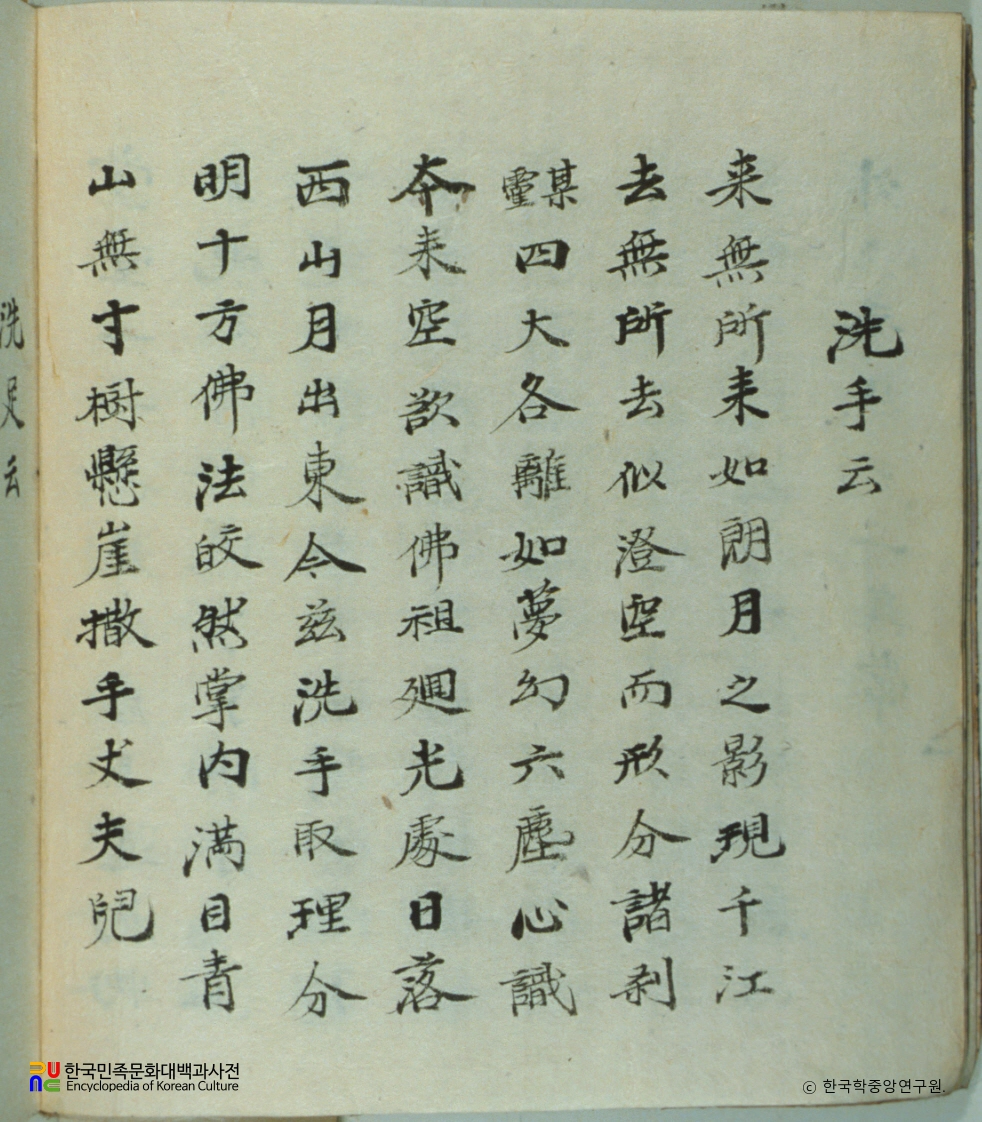 洗手云
来無所来如朗月之影現千江
去無所去似澄空而形分諸刹
某靈四大各離如夢幻六塵心識
本来空欲識佛祖廻光處日落
西山月出東今玆洗手取理分
明十方佛法皎然掌内满目青
山無寸樹懸崖撒手丈夫皃
洗足云
한국민족문화대백과사전
Encyclopedia of Korean Culture
ⓒ 한국학중앙연구원.